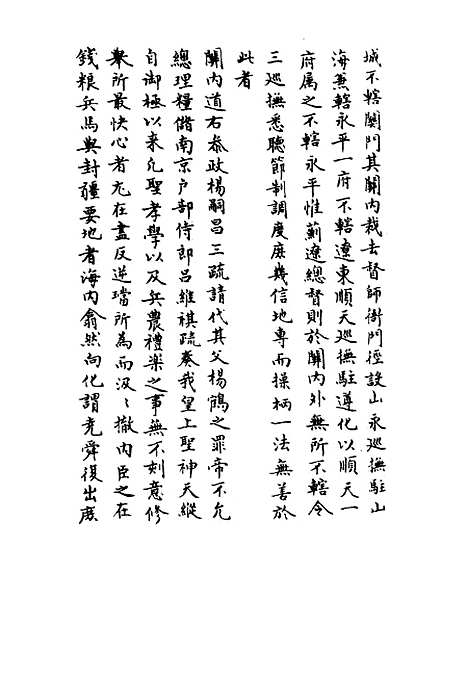 城不轄關門其關内裁去督師衙門徑設山永巡撫駐山
海兼轄永平一府不轄遼東順天巡撫駐遵化以順天一
府属之不轄永平惟薊遼總督則於關内外無所不轄令
三巡撫悉聽節制調度庶幾信地專而操柄一法無善於
此者
關内道右叅政楊嗣昌三疏請代其父楊鶴之罪帝不允
總理糧儲南京户部侍郎吕維祺疏奏我皇上聖神天縱
自御極以来凢聖孝學以及兵農禮楽之事無不刻意修
舉所最快心者尤在盡反逆璫所為而汲〻撤内臣之在
錢粮兵馬與封疆要地者海内翕然向化謂尭舜復出庶